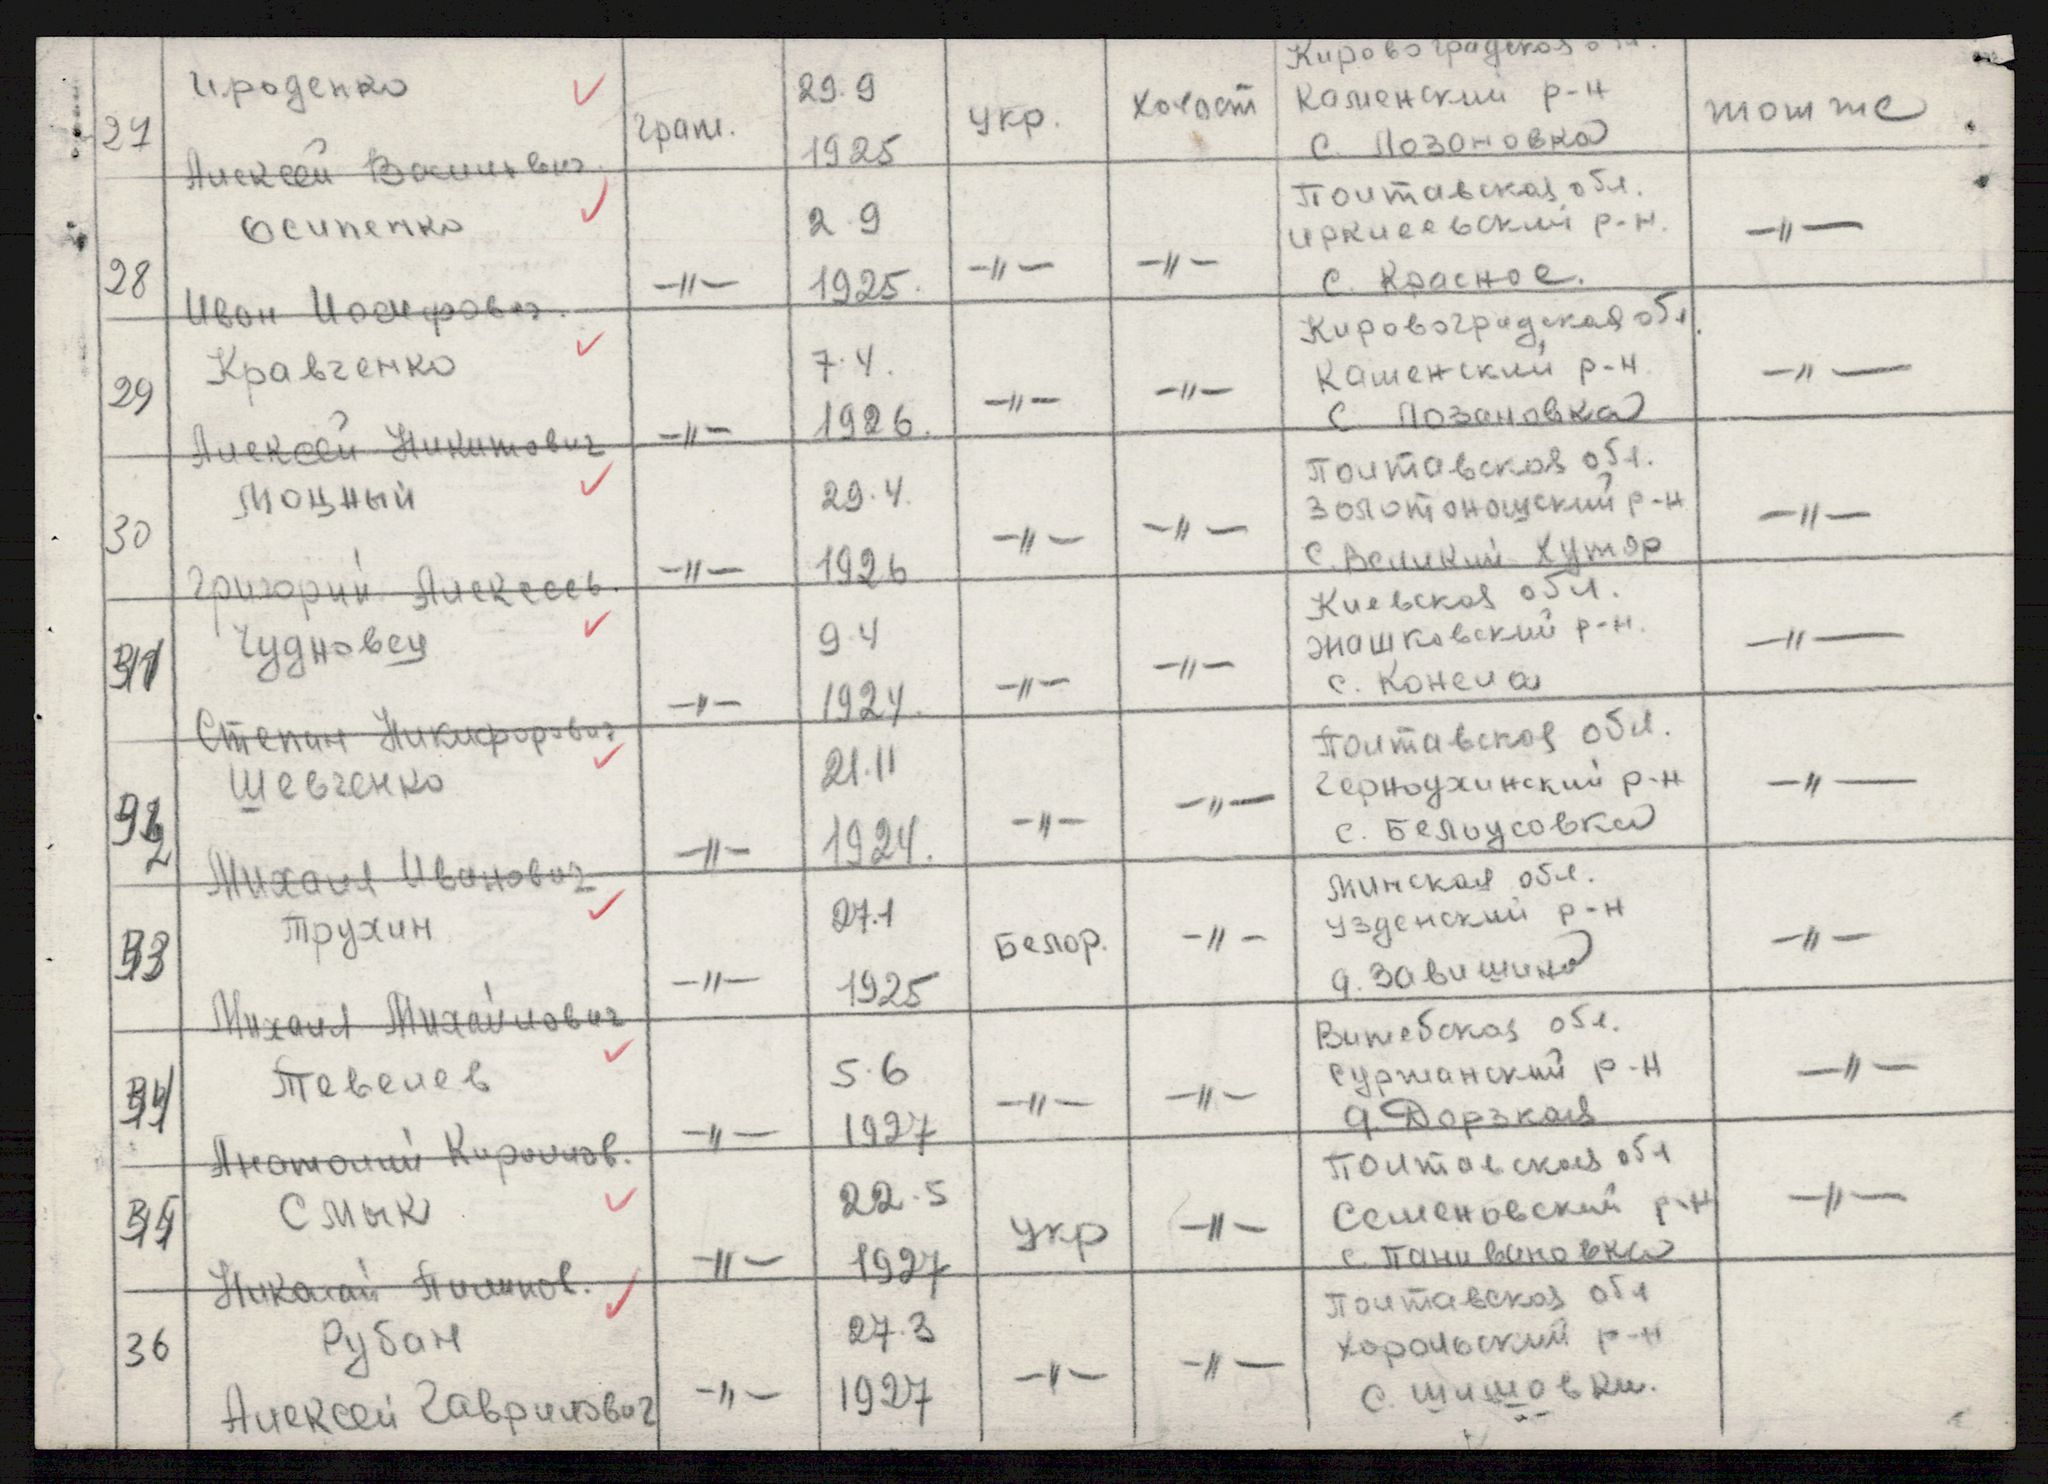 27 Ироденко Алексей Васильевич граж. 29.9 1925 укр. холост Кировоградская обл. Каменский р-н с. Лозановка тот же
28 Осипенко Иван Иосифович. -"- 2.9 1925. -"- -"- Полтавская обл. Иркисевский р-н. с. Красное. -"-
29 Кравченко Алексей Никитович -"- 7.4. 1926. -"- -"- Кировоградская обл. Каменский р-н с Лозановка -"-
30 Моцный Григорий Алексеев. -"- 29.4. 1926 -"- -"- Полтавская обл. Золотоношский р-н с. Великий Хутор -"-
31 Чудновец Степан Никифорович -"- 9.4 1924. -"- -"- Киевская обл. Жашковский р-н. с. Конела -"-
32 Шевченко Михаил Иванович -"- 21.11 1924. -"- -"- Полтавская обл. Черноухинский р-н с. Белоусовка -"-
33 Трухин Михаил Михайлович -"- 27.1 1925 Белор. -"- Минская обл. Узденский р-н д. Завишино -"-
34 Тевелев Анатолий Кириллов. -"- 5.6 1927 -"- -"- Витебская обл. Суржанский р-н д. Дорзкая -"-
35 Смык Николай Филипов. -"- 22.5 1927 укр -"- Полтавская обл Семеновский р-н с. Панивановка -"-
36 Рубан Алексей Гаврилович -"- 27.3 1927 -"- -"- Полтавская обл Хорольский р-н с. Шишовки.